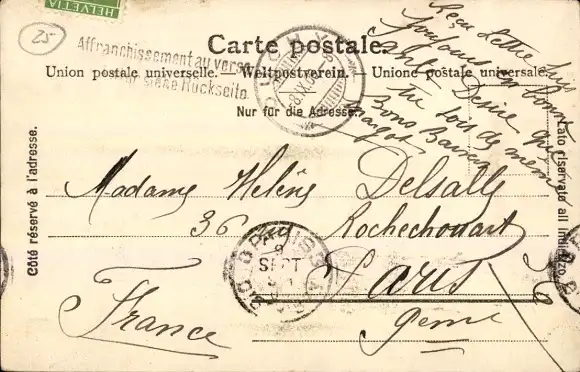 HELVETIA
25
Affranchissement au verso
siehe Rückseite
Carte postale.
Union postale universelle. — Weltpostverein. — Unione postale universale.
Nur für die Adresse.
Côté réservé à l'adresse.
Lato riservato all' indirizzo.
Reçu Lettre suis
toujours en bonne
santé Désire que
tu sois de même
Bons Baisers
Madame Helène Delsalle
36 rue Rochechouart
Paris
9eme
France
SEPT